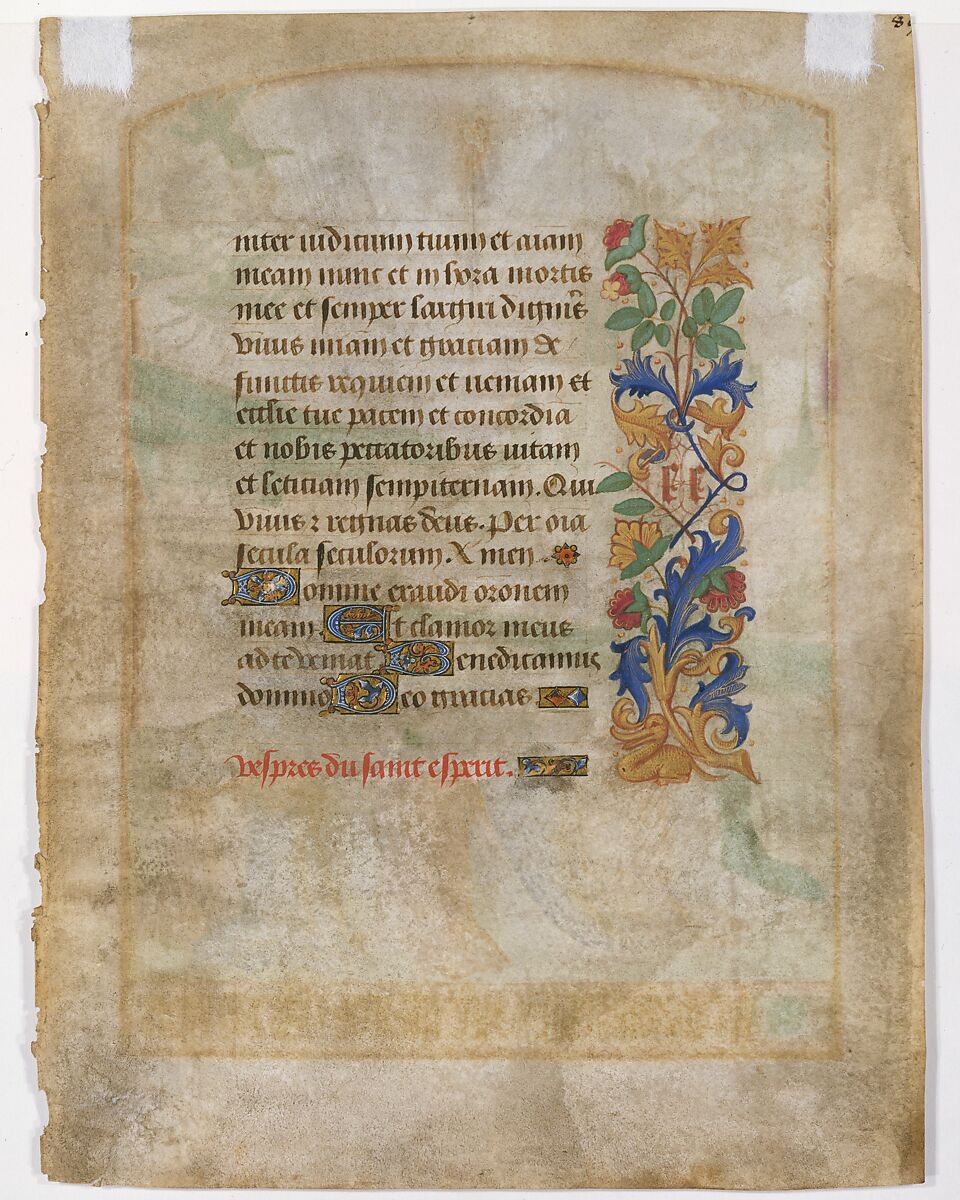 inter iudicium tuum et aīam
meam nunc et in hora mortis
mee et semper largiri digneris
viuis m̄iam et gratiam de
functis requiem et veniam et
ecclīe tue pacem et concordia
et nobis peccatoribus uitam
et leticiam sempiternam. Qui
viuis ⁊ regnas deus. Per oīa
secula seculorum. Amen
Domine exaudi oronem
meam. Et clamor meus
ad te veniat. Benedicamus
domino Deo gracias
Vespres du saint esperit.